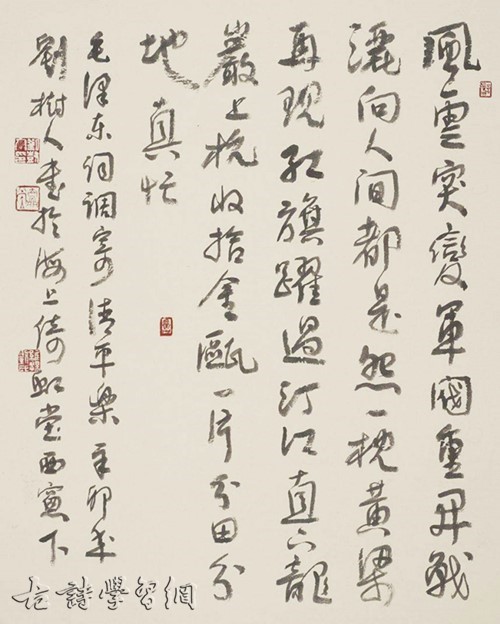 風雲突變軍閥重開戰
灑向人間都是怨一枕黄梁
再現紅旗躍過汀江直下龍
巖上杭收拾金甌一片分田分
地真忙
毛澤東詞調寄清平樂辛卯年
劉樹人書於海上倚虹堂西窗下
古詩學習網